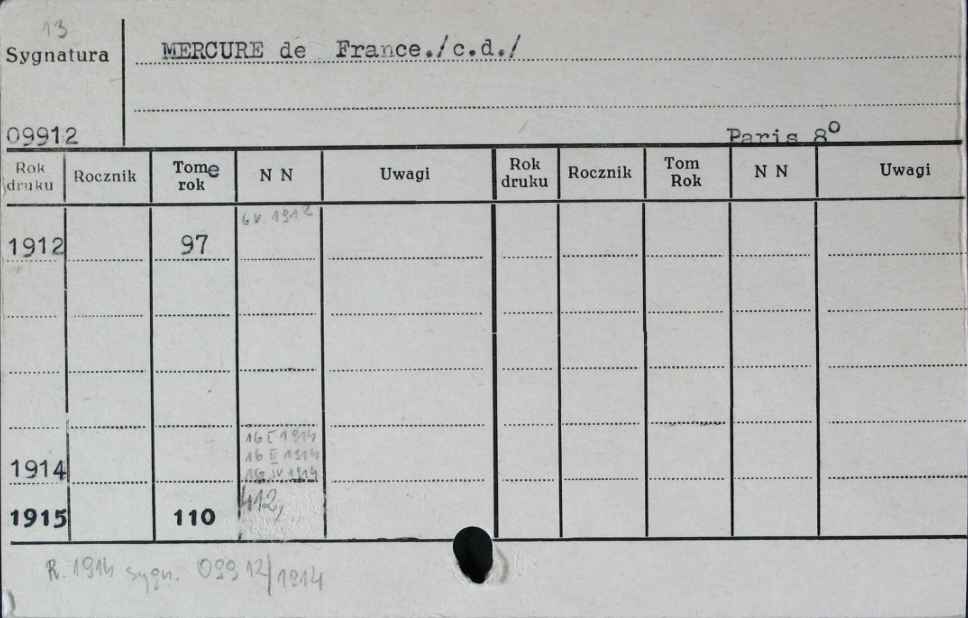 13
Sygnatura MERCURE de France./c.d./
09912 Paris 8°
Rok druku Rocznik Tome rok N N Uwagi Rok druku Rocznik Tom Rok N N Uwagi
6 V 1912
1912 97
16 I 1914
16 II 1914
1914 16 IV 1914
1915 110 412,
R. 1914 sygn. 09912/1914